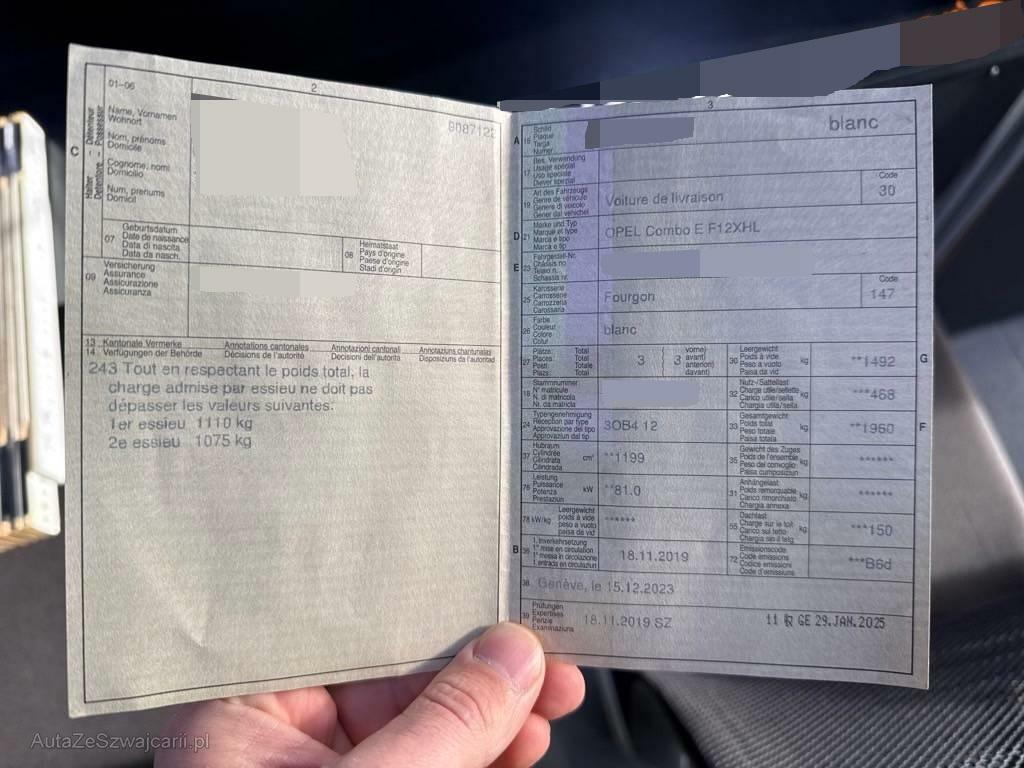 2
01-06
Name, Vornamen
Wohnort
Nom, prénoms
Domicile
Cognome, nomi
Domicilio
Num, prenums
Domicil
C
Halter
Détenteur
Detentore
Possessur
9087122
07
Geburtsdatum
Date de naissance
Data di nascita
Data da nasch.
08
Heimatstaat
Pays d'origine
Paese d'origine
Stadi d'origin
09
Versicherung
Assurance
Assicurazione
Assicuranza
13 Kantonale Vermerke Annotations cantonales Annotazioni cantonali Annotaziuns chantunalas
14 Verfügungen der Behörde Décisions de l'autorité Decisioni dell'autorità Disposiziuns da l'autoritad
243 Tout en respectant le poids total, la
charge admise par essieu ne doit pas
dépasser les valeurs suivantes:
1er essieu 1110 kg
2e essieu 1075 kg
3
A 15 Schild
Plaque
Targa
Numer
blanc
17 Bes. Verwendung
Usage spécial
Uso speciale
Diever spezial
19 Art des Fahrzeugs
Genre de véhicule
Genere di veicolo
Gener dal vehichel
Voiture de livraison
Code
30
D 21 Marke und Typ
Marque et type
Marca e tipo
Marca e tip
OPEL Combo E F12XHL
E 23 Fahrgestell-Nr.
Châssis no
Telaio n.
Schassis nr.
25 Karosserie
Carrosserie
Carrozzeria
Carossaria
Fourgon
Code
147
26 Farbe
Couleur
Colore
Colur
blanc
27 Plätze: Total
Places: Total
Posti: Totale
Plazs: Total
3
3
vorne)
avant)
anteriori)
davant)
30 Leergewicht
Poids à vide
Peso a vuoto
Paisa da vid
kg
**1492
G
18 Stammnummer
N° matricule
N. di matricola
Nr. da matricla
32 Nutz-/Sattellast
Charge utile/sellette
Carico utile/sella
Chargia utila/sella
kg
***468
24 Typengenehmigung
Réception par type
Approvazione del tipo
Approvaziun dal tip
3OB4 12
33 Gesamtgewicht
Poids total
Peso totale
Paisa totala
kg
**1960
F
37 Hubraum
Cylindrée
Cilindrata
Cilindrada
cm³
**1199
35 Gewicht des Zuges
Poids de l'ensemble
Peso del convoglio
Paisa cumposiziun
kg
******
76 Leistung
Puissance
Potenza
Prestaziun
kW
**81.0
31 Anhängelast
Poids remorquable
Carico rimorchiato
Chargia annexa
kg
******
78 kW/kg
Leergewicht
poids à vide
peso a vuoto
paisa da vid
******
55 Dachlast
Charge sur le toit
Carico sul tetto
Chargia sin il tetg
kg
***150
B 36 1. Inverkehrsetzung
1re mise en circulation
1a messa in circolazione
1. entrada en circulaziun
18.11.2019
72 Emissionscode
Code émissions
Codice emissioni
Code d'emissiuns
***B6d
38 Genève, le 15.12.2023
39 Prüfungen
Expertises
Perizie
Examinaziuns
18.11.2019 SZ
11 R GE 29.JAN.2025
AutaZeSzwajcarii.pl